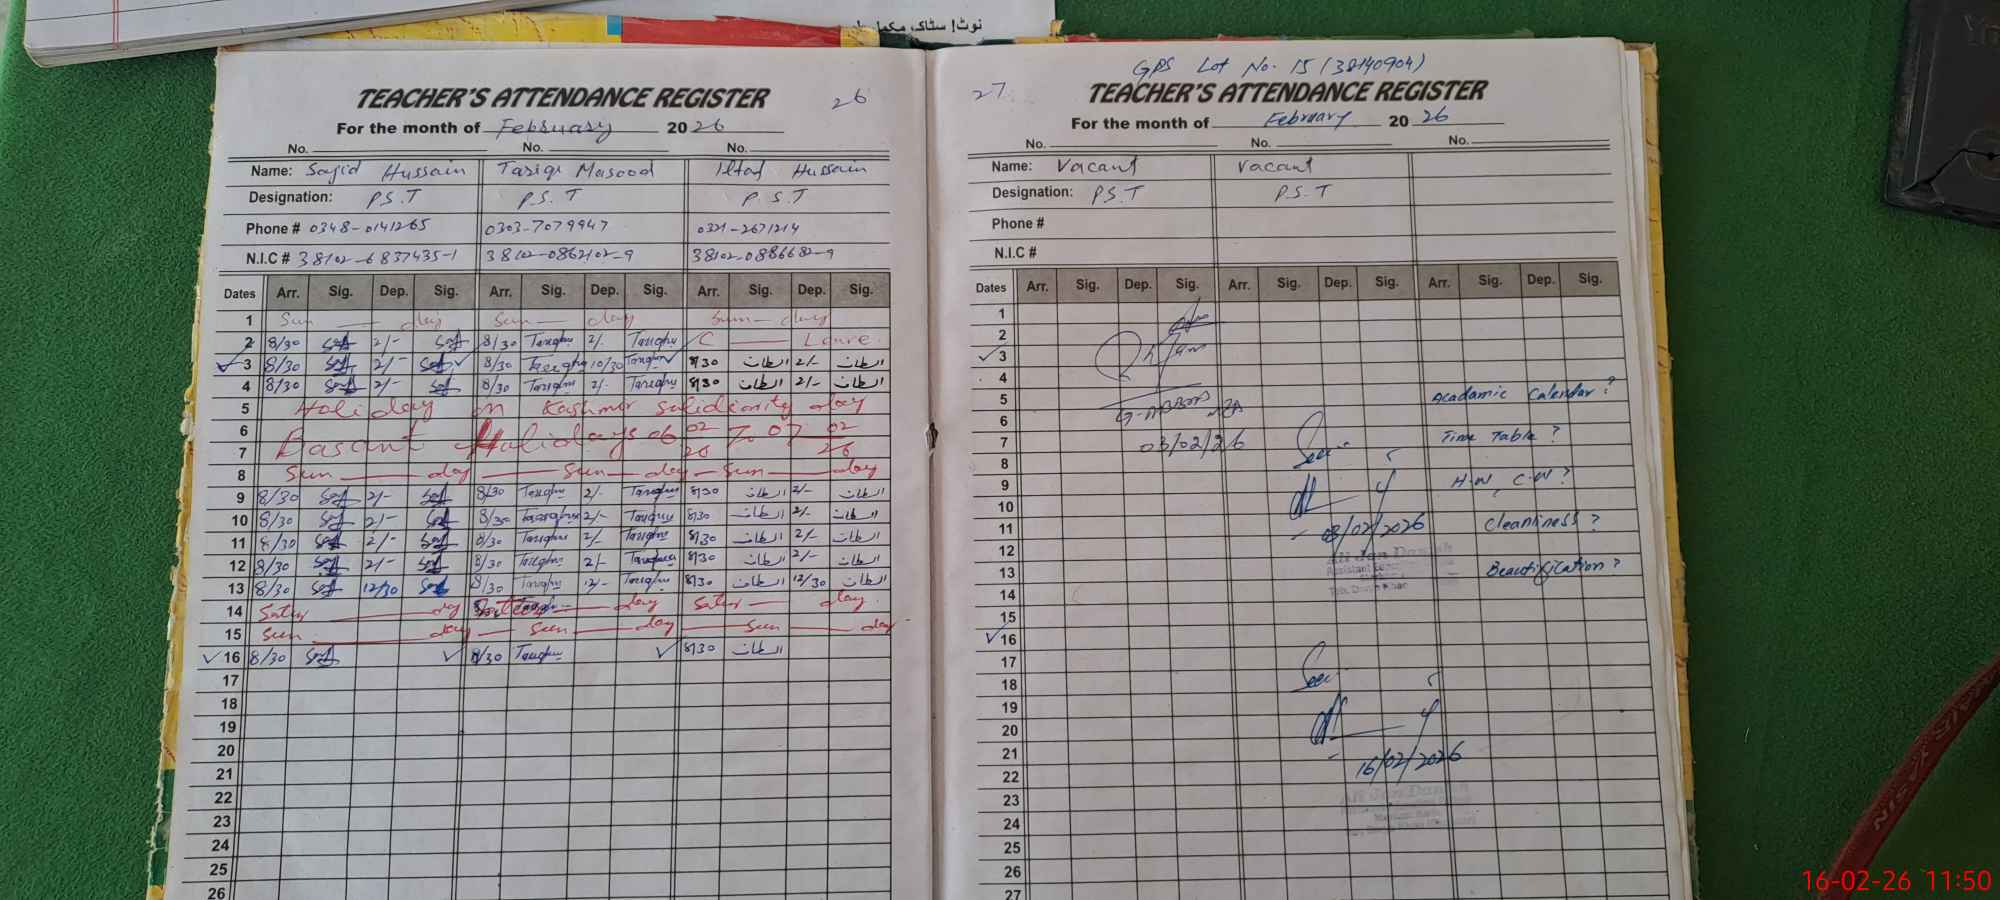 نوٹ! سٹاک مکمل
TEACHER'S ATTENDANCE REGISTER 26
For the month of February 2026
No. No. No.
Name: Sajid Hussain Tariq Masood Iltaf Hussain
Designation: P.S.T P.S.T P.S.T
Phone # 0348-0141265 0303-7079947 0321-2671214
N.I.C # 38102-6837435-1 38102-0862102-9 38102-0886682-9
Dates Arr. Sig. Dep. Sig. Arr. Sig. Dep. Sig. Arr. Sig. Dep. Sig.
1 Sun day Sun day Sun day
2 8/30 2/- 8/30 2/- C Leave
3 8/30 2/- 8/30 10/30 8/30 الطاف 2/- الطاف
4 8/30 2/- 8/30 2/- 8/30 الطاف 2/- الطاف
5 Holiday on Kashmir Solidiarity day
6 Basant Holidays 06 02 To 07 02
7 26 26
8 Sun day Sun day Sun day
9 8/30 2/- 8/30 2/- 8/30 الطاف 2/- الطاف
10 8/30 2/- 8/30 2/- 8/30 الطاف 2/- الطاف
11 8/30 2/- 8/30 2/- 8/30 الطاف 2/- الطاف
12 8/30 2/- 8/30 2/- 8/30 الطاف 2/- الطاف
13 8/30 12/30 8/30 12/- 8/30 الطاف 12/30 الطاف
14 Satur day day Satur day
15 Sun day Sun day Sun day
16 8/30 8/30 8/30 الطاف
17
18
19
20
21
22
23
24
25
26
GPS Lot No. 15 (38140904)
27
TEACHER'S ATTENDANCE REGISTER
For the month of February 2026
No. No. No.
Name: Vacant Vacant
Designation: P.S.T P.S.T
Phone #
N.I.C #
Dates Arr. Sig. Dep. Sig. Arr. Sig. Dep. Sig. Arr. Sig. Dep. Sig.
1
2
3
4
5 Acadamic Calendar?
6
7 03/02/26 Time Table?
8
9 H.W, C.W?
10
11 03/02/2026 Cleanliness?
12 Ali Jan Danish
13 Beautification?
14
15
16
17
18
19
20
21
22 16/02/2026
23 Ali Jan Danish
24
25
26
27
16-02-26 11:50